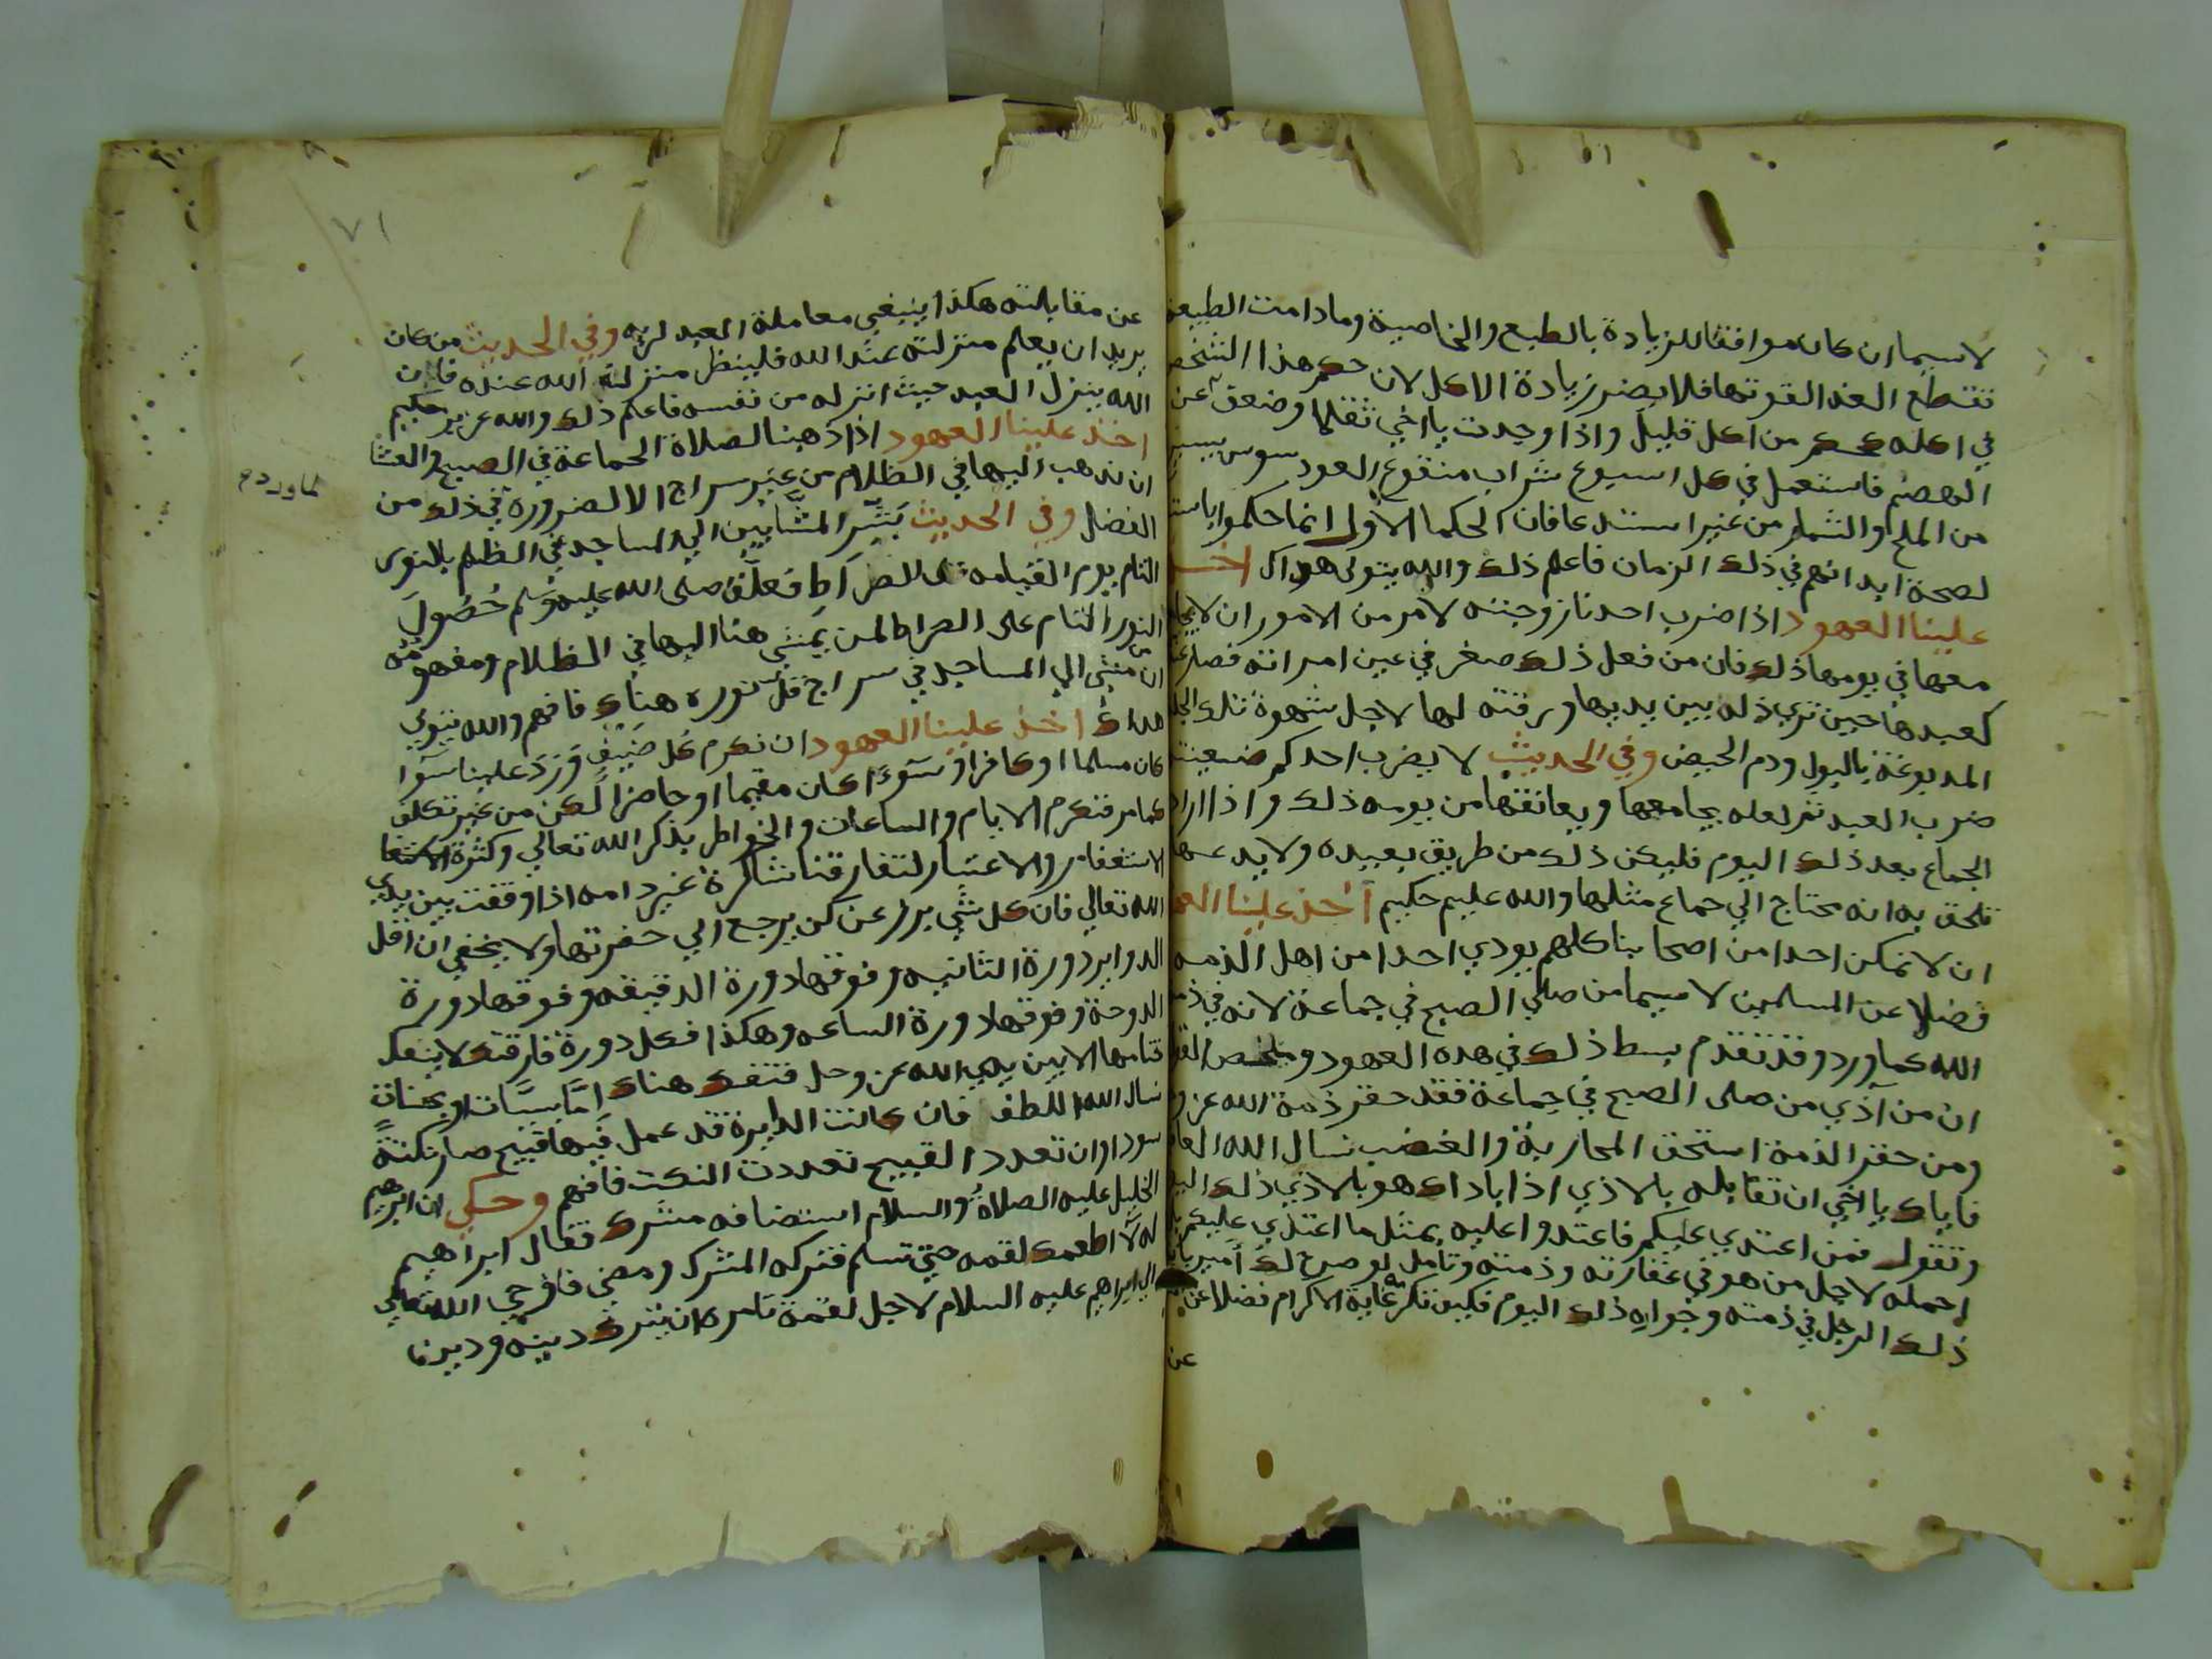 لاسيما ان كان موافقا للزيادة بالطبع والخاصية ومادامت الطبيعة
تقتطع الغذا لقوتها فلا يضر زيادة الاكل لان حكم هذا الشخص
في اكله حكم من اكل قليل واذا وجدت يا اخي ثقلا وضعف عن
الهضم فاستعمل في كل اسبوع شراب منقوع العود سوس بيسير
من الملح والشمار من غير استدعا فان الحكما الاول انما حكموا
لصحة ابدانهم في ذلك الزمان فاعلم ذلك والله يتولى هداك اخذ
علينا العهود اذا ضرب احدنا زوجته لامر من الامور ان لا
معها في يومها ذلك فان من فعل ذلك صغر في عين امراته فصار
كعبدها حين تري ذله بين يديها ورقته لها لاجل شهوة تلك الجلد
المدبوغة بالبول ودم الحيض وفي الحديث لا يضرب احدكم
ضرب العبد ثم لعله يجامعها ويعانقها من يومه ذلك واذا اراد
الجماع بعد ذلك اليوم فليكن ذلك من طريق بعيده ولا يدعها
تلحق به انه محتاج الي جماع مثلها والله عليم حكيم اخذ علينا العهود
ان لا نمكن احدا من اصحابنا كلهم يودي احدا من اهل الذمه
فضلا عن المسلمين لاسيما من صلي الصبح في جماعة لانه في ذمة
الله كما ورد وقد تقدم بسط ذلك في هده العهود وملخص
ان من آذي من صلى الصبح في جماعة فقد حقر ذمة الله عز و
ومن حقر الذمة استحق المحاربة والغضب نسال الله العا
فاياك يا اخي ان تقابله بالاذي اذا باداك هو بالاذي ذلك
وتقول فمن اعتدي عليكم فاعتدوا عليه بمثل ما اعتدي عليكم
احمله لاجل من هو في غفارته وذمته وتامل لو صرح لك امير
ذلك الرجل في ذمته وجواره ذلك اليوم فكيف تكرمه غاية الاكرام فضلا عن
عن
٧١
عن مقابلته هكذا ينبغي معاملة العبد لربه وفي الحديث من كان
يريد ان يعلم منزلته عند الله فلينظر منزلة الله عنده فان
الله ينزل العبد حيث انزله من نفسه فاعلم ذلك والله عزيز حكيم
اخذ علينا العهود اذا ذهبنا لصلاة الجماعة في الصبح والعشا
ان نذهب اليها في الظلام من غير سراج الا لضرورة في ذلك من
الفضل وفي الحديث بشر المشايين الي المساجد في الظلم بالنور
التام يوم القيامه على الصراط فعلق صلى الله عليه وسلم حصول
النور التام على الصراط لمن يمشي هنا اليها في الظلام ومفهومه
ان من مشي الي المساجد في سراج قل نوره هناك فافهم والله يتولي
هداك اخذ علينا العهود ان نكرم كل ضيف ورد علينا سوا
كان مسلما او كافرا وسوا كان مقيما او حاضرا لكن من غير تكلف
كما مر فنكرم الايام والساعات والخواطر بذكر الله تعالي وكثرة
الاستغفار والاعتبار لتفارقنا شاكرة غير دامه اذا وقفت بين يدي
الله تعالي فان كل شي برز عن كن يرجع الي حضرتها ولا يخفي ان اقل
الدواير دورة الثانيه وفوقها دورة الدقيقه وفوقها دورة
الدرجة وفوقها دورة الساعه وهكذا فكل دورة فارقتك لا ينفك
ختامها الا بين يدي الله عز وجل فتنفك هناك اما بسيات او بحسنات
نسال الله اللطف فان كانت الدايرة قد عمل فيها قبيح صار نكتة
سودا وان تعدد القبيح تعددت النكت فافهم وحكي ان ابرهيم
الخليل عليه الصلاة والسلام استضافه مشرك فقال ابراهيم
له لا اطعمك لقمه حتي تسلم فتركه المشرك ومضي فاوحي الله تعالي
الي ابراهيم عليه السلام لاجل لقمة تامره ان يترك دينه ودين
كما ورد